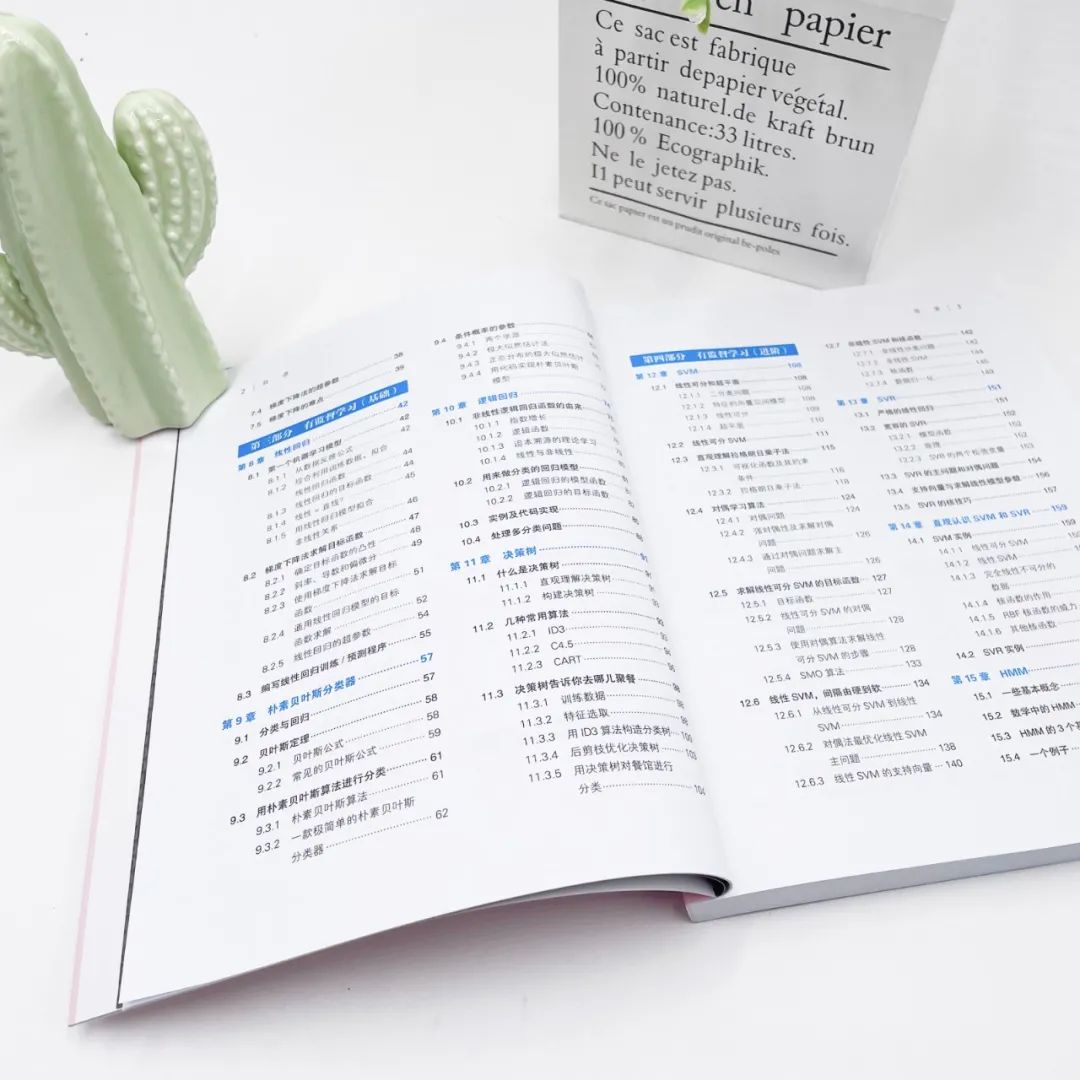 en papier
Ce sac est fabrique
à partir depapier végétal.
100% naturel.de kraft brun
Contenance:33 litres.
100% Ecographik.
Ne le jetez pas.
Il peut servir plusieurs fois.
Ce sac papier est un prudit original be-poles
2 目 录
7.4 梯度下降法的超参数 38
7.5 梯度下降的难点 39
第三部分 有监督学习(基础)
第 8 章 线性回归 42
8.1 第一个机器学习模型 42
8.1.1 从数据反推公式
8.1.2 综合利用训练数据,拟合
线性回归函数 44
8.1.3 线性回归的目标函数 44
8.1.4 线性 = 直线? 45
8.1.5 用线性回归模型拟合
非线性关系 46
8.2 梯度下降法求解目标函数 47
8.2.1 确定目标函数的凸性 48
8.2.2 斜率、导数和偏微分 49
8.2.3 使用梯度下降法求解目标
函数 51
8.2.4 通用线性回归模型的目标
函数求解 52
8.2.5 线性回归的超参数 54
8.3 编写线性回归训练/预测程序 55
第 9 章 朴素贝叶斯分类器 57
9.1 分类与回归 57
9.2 贝叶斯定理 58
9.2.1 贝叶斯公式 58
9.2.2 常见的贝叶斯公式 59
9.3 用朴素贝叶斯算法进行分类 61
9.3.1 朴素贝叶斯算法 61
9.3.2 一款极简单的朴素贝叶斯
分类器 62
9.4 条件概率的参数
9.4.1 两个学派
9.4.2 极大似然估计法
9.4.3 正态分布的极大似然估计
9.4.4 用代码实现朴素贝叶斯
模型
第 10 章 逻辑回归
10.1 非线性逻辑回归函数的由来
10.1.1 指数增长
10.1.2 逻辑函数
10.1.3 追本溯源的理论学习
10.1.4 线性与非线性
10.2 用来做分类的回归模型
10.2.1 逻辑回归的模型函数
10.2.2 逻辑回归的目标函数
10.3 实例及代码实现
10.4 处理多分类问题
第 11 章 决策树
11.1 什么是决策树
11.1.1 直观理解决策树
11.1.2 构建决策树
11.2 几种常用算法
11.2.1 ID3
11.2.2 C4.5
11.2.3 CART
11.3 决策树告诉你去哪儿聚餐
11.3.1 训练数据
11.3.2 特征选取
11.3.3 用 ID3 算法构造分类树 100
11.3.4 后剪枝优化决策树 103
11.3.5 用决策树对餐馆进行
分类 104
第四部分 有监督学习(进阶)
第 12 章 SVM 108
12.1 线性可分和超平面 108
12.1.1 二分类问题 108
12.1.2 特征的向量空间模型 109
12.1.3 线性可分 109
12.1.4 超平面 110
12.2 线性可分 SVM 111
12.3 直观理解拉格朗日乘子法 115
12.3.1 可视化函数及其约束
条件 116
12.3.2 拉格朗日乘子法 118
12.4 对偶学习算法 124
12.4.1 对偶问题 124
12.4.2 强对偶性及求解对偶
问题 126
12.4.3 通过对偶问题求解主
问题 126
12.5 求解线性可分 SVM 的目标函数 127
12.5.1 目标函数 127
12.5.2 线性可分 SVM 的对偶
问题 128
12.5.3 使用对偶算法求解线性
可分 SVM 的步骤 128
12.5.4 SMO 算法 133
12.6 线性 SVM,间隔由硬到软 134
12.6.1 从线性可分 SVM 到线性
SVM 134
12.6.2 对偶法最优化线性 SVM
主问题 138
12.6.3 线性 SVM 的支持向量 140
12.7 非线性 SVM 和核函数 142
12.7.1 非线性分类问题 142
12.7.2 非线性 SVM 144
12.7.3 核函数
12.7.4 数据归一化
第 13 章 SVR 151
13.1 严格的线性回归 151
13.2 宽容的 SVR 152
13.2.1 模型函数 152
13.2.2 原理 152
13.2.3 SVR 的两个松弛变量 153
13.3 SVR 的主问题和对偶问题 154
13.4 支持向量与求解线性模型参数 156
13.5 SVR 的核技巧 157
第 14 章 直观认识 SVM 和 SVR 159
14.1 SVM 实例 159
14.1.1 线性可分 SVM
14.1.2 线性 SVM
14.1.3 完全线性不可分的
数据
14.1.4 核函数的作用
14.1.5 RBF 核函数的威力
14.1.6 其他核函数
14.2 SVR 实例
第 15 章 HMM
15.1 一些基本概念
15.2 数学中的 HMM
15.3 HMM 的 3 个基
15.4 一个例子